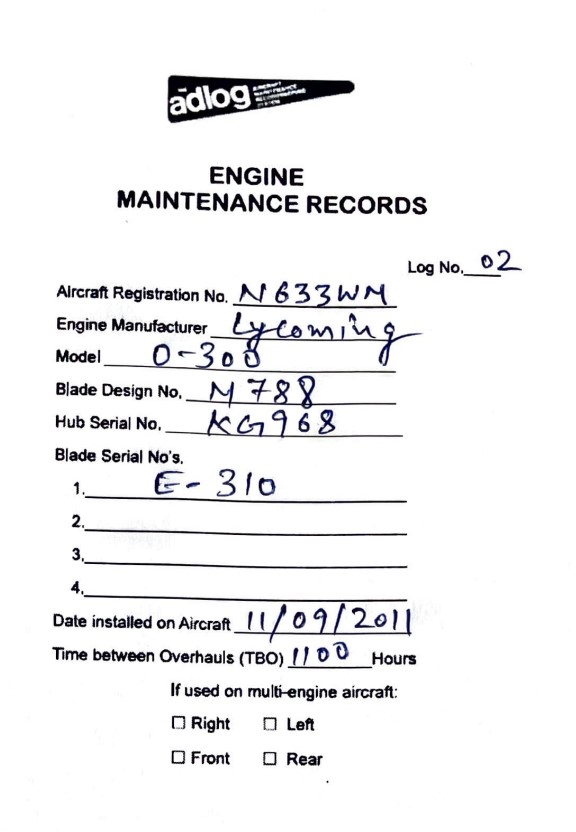 adlog
AIRCRAFT
MAINTENANCE
RECORDKEEPING
SYSTEM
ENGINE
MAINTENANCE RECORDS
Log No. 02
Aircraft Registration No. N633WM
Engine Manufacturer Lycoming
Model O-300
Blade Design No. M788
Hub Serial No. KG968
Blade Serial No's.
1. E-310
2.
3.
4.
Date installed on Aircraft 11/09/2011
Time between Overhauls (TBO) 1100 Hours
If used on multi-engine aircraft:
☐ Right ☐ Left
☐ Front ☐ Rear